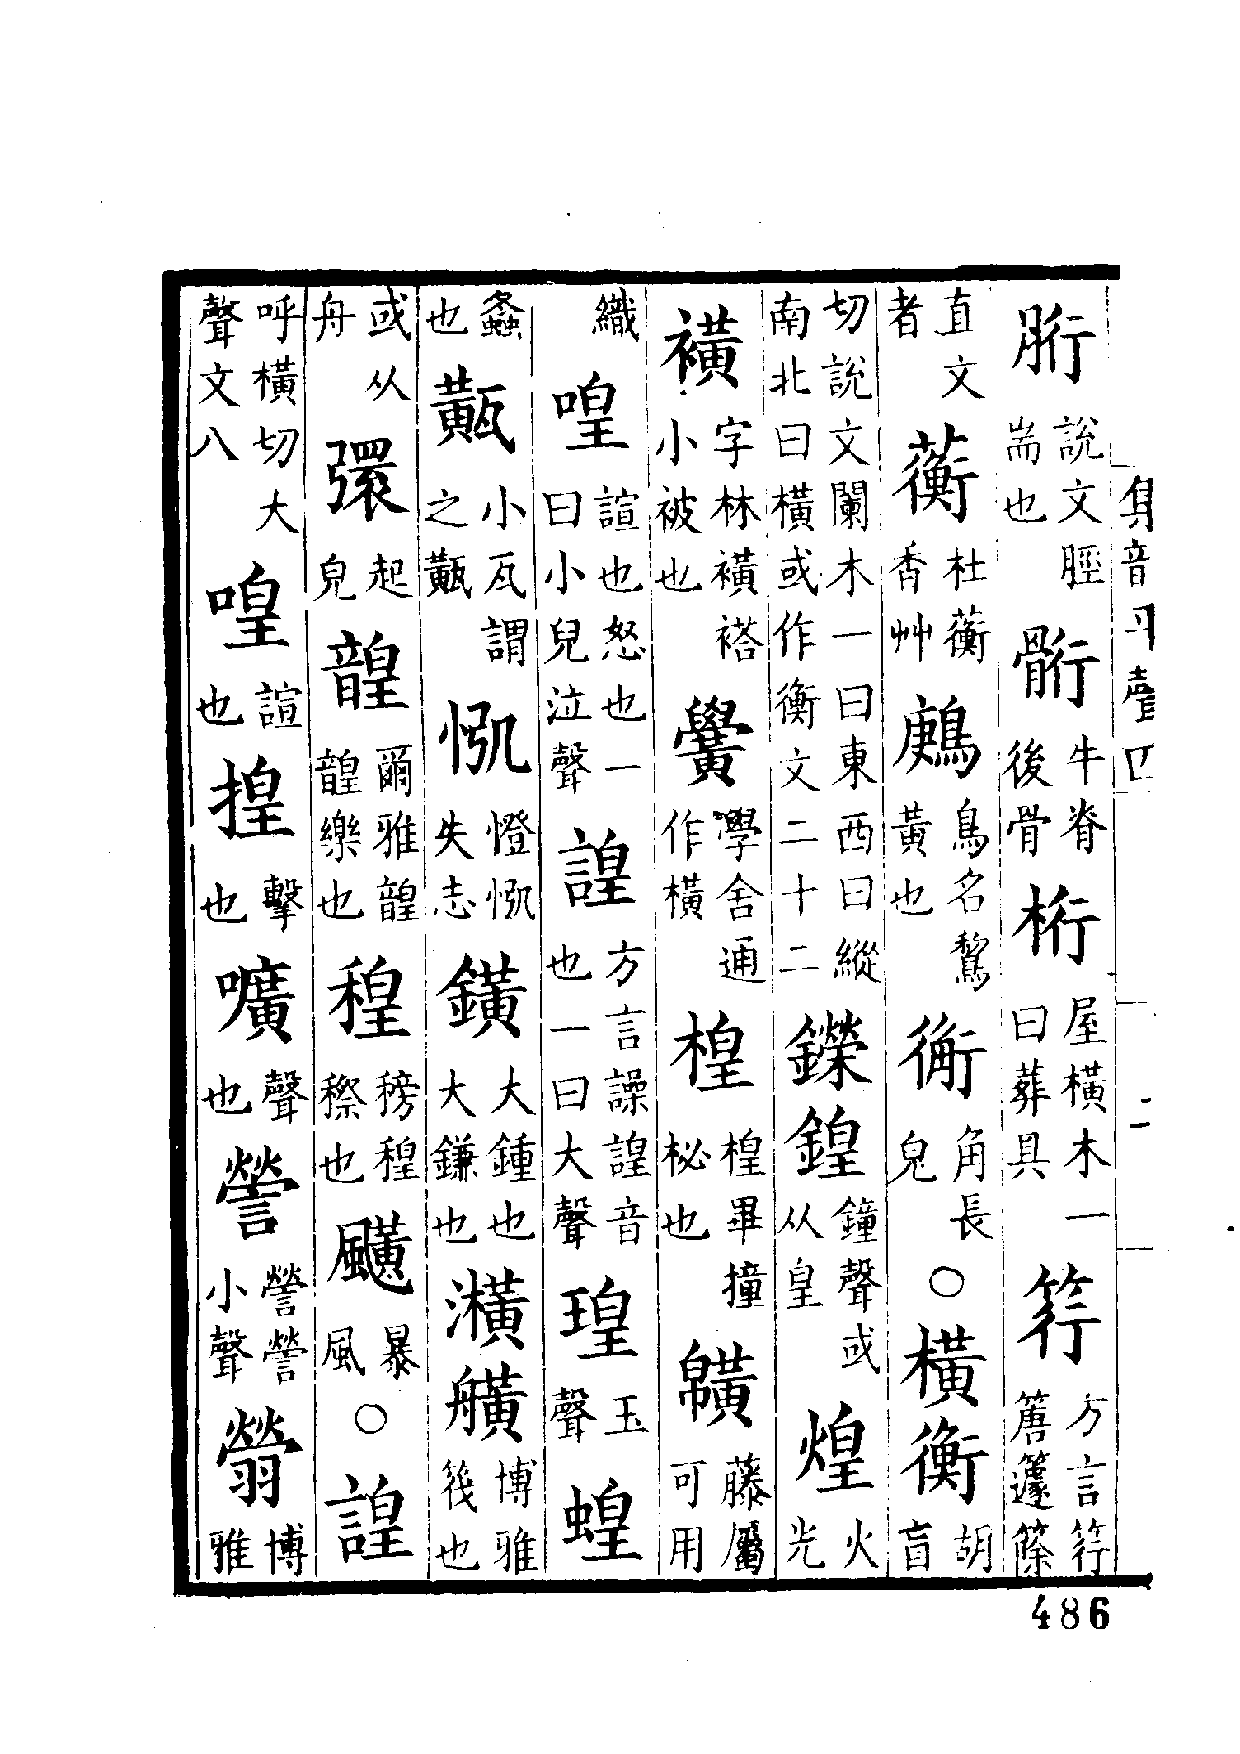 集韻平聲四
二
胻說文脛耑也䯒牛脊後骨桁屋橫木一曰葬具筕方言筕篖籧篨
直文者蘅杜蘅香艸鸆鳥名鶩黃也衡角長皃○橫衡胡盲
切說文闌木一曰東西曰縱南北曰橫或作衡文二十二鑅鍠鐘聲或从皇煌火光
䙲字林䙲褡小被也黌學舍通作橫楻楻畢撞柲也㡆藤屬可用
織喤諠也怒也一曰小兒泣聲諻方言譟諻音也一曰大聲瑝玉聲蝗
螽也小瓦謂之失志鐄大鍾也大鎌也潢艎博雅筏也
或从舟彋起皃韹爾雅韹韹樂也䅣䅭䅣穄也颹暴風○諻
呼橫切大聲文八喤諠也揘擊也嚝聲也謍謍謍小聲翧博雅
486